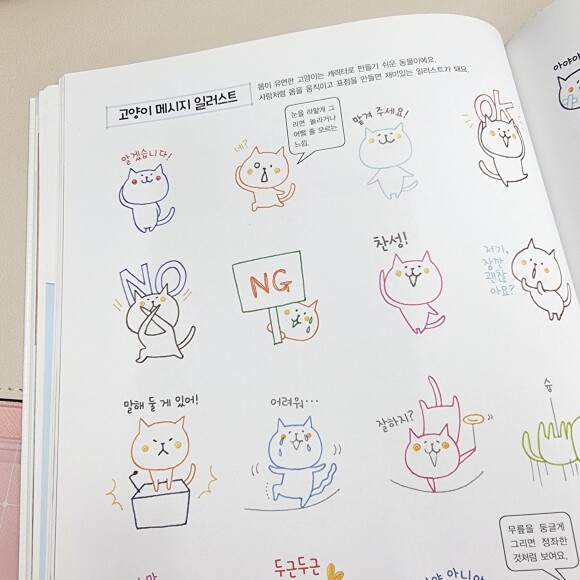 고양이 메시지 일러스트
몸이 유연한 고양이는 캐릭터로 만들기 쉬운 동물이에요.
사람처럼 몸을 움직이고 표정을 만들면 재미있는 일러스트가 돼요.
알겠습니다!
네?
눈을 하얗게 그
리면 놀라거나
어쩔 줄 모르는
느낌.
맡겨 주세요!
OK
NO
NG
찬성!
저기,
잠깐
괜찮
아요?
말해 둘 게 있어!
어려워…
잘하지?
슝
무릎을 둥글게
그리면 정좌한
것처럼 보여요.
두근두근
아야아